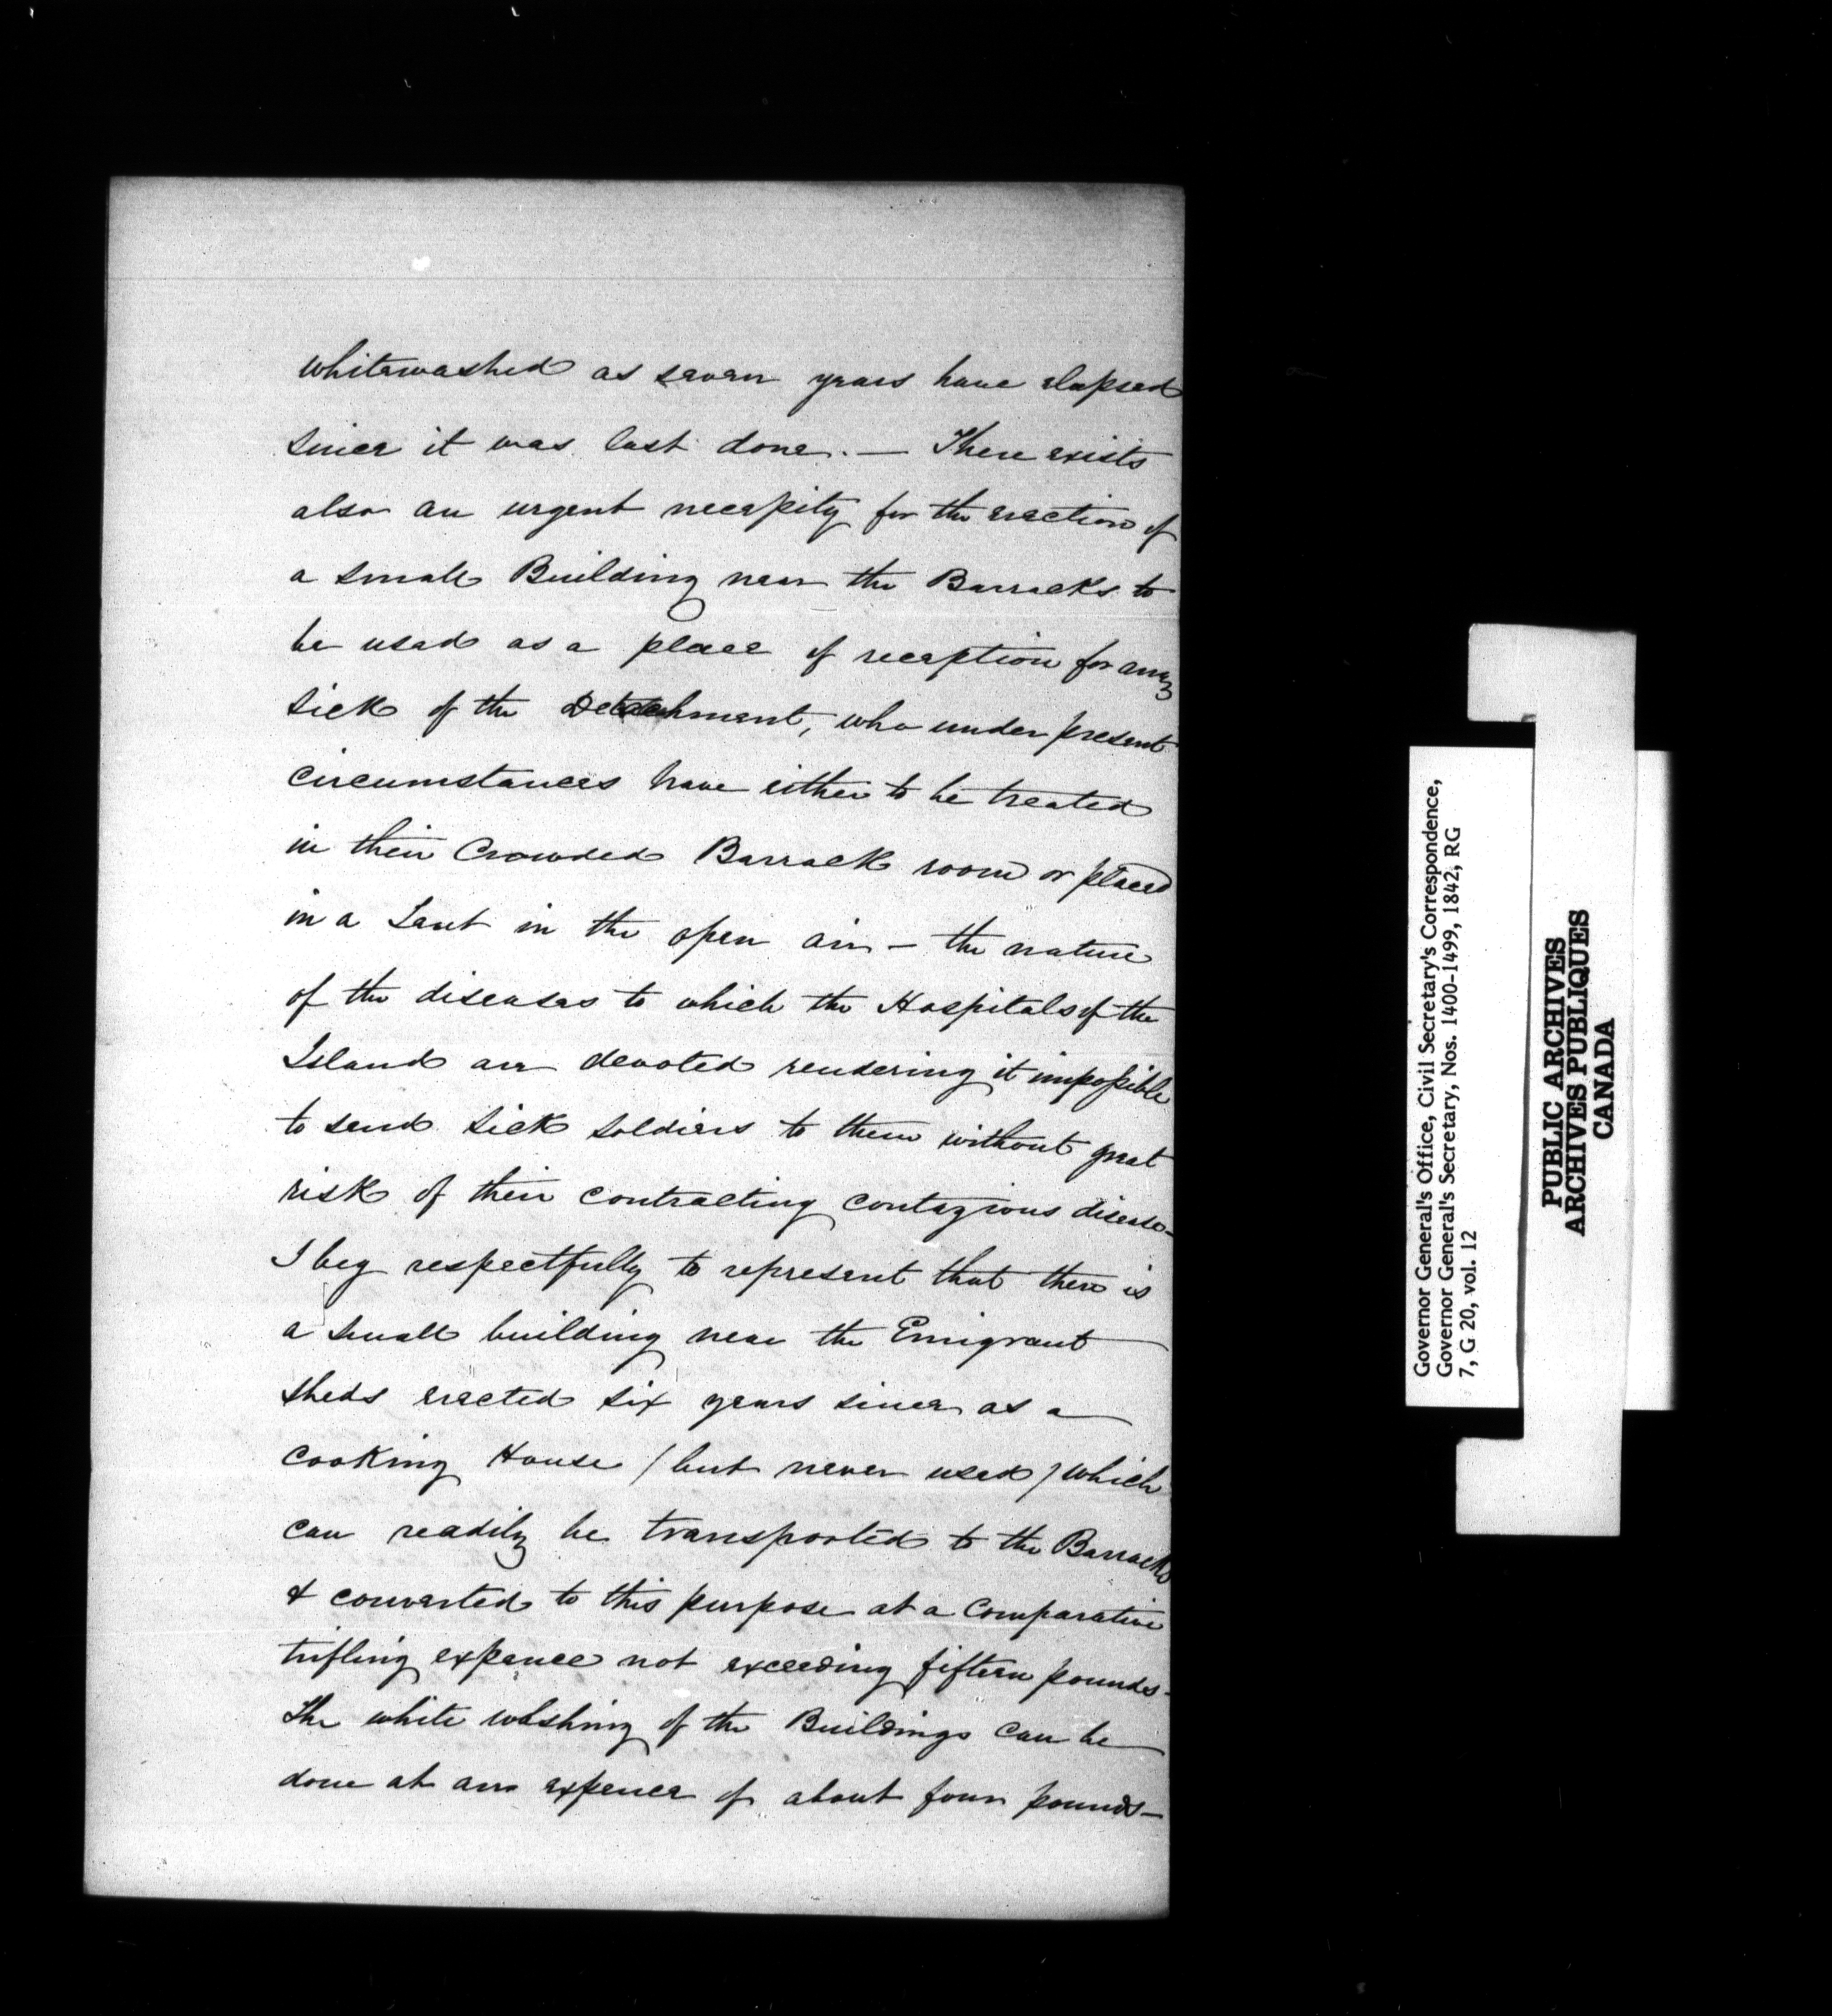 whitewashed as seven years have elapsed
since it was last done. — There exists
also an urgent necessity for the erection of
a small Building near the Barracks to
be used as a place of reception for any
sick of the Detachment, who under present
circumstances have either to be treated
in their Crowded Barrack room or placed
in a Tent in the open air – the nature
of the diseases to which the Hospitals of the
Island are devoted rendering it impossible
to send sick soldiers to them without great
risk of their contracting contagious disease –
I beg respectfully to represent that there is
a small building near the Emigrant
sheds erected six years since as a
Cooking House / but never used / which
can readily be transported to the Barracks
& converted to this purpose at a Comparative
trifling expence not exceeding fifteen pounds –
The white washing of the Buildings can be
done at an expence of about four pounds –
Governor General's Office, Civil Secretary's Correspondence,
Governor General's Secretary, Nos. 1400-1499, 1842, RG
7, G 20, vol. 12
PUBLIC ARCHIVES
ARCHIVES PUBLIQUES
CANADA